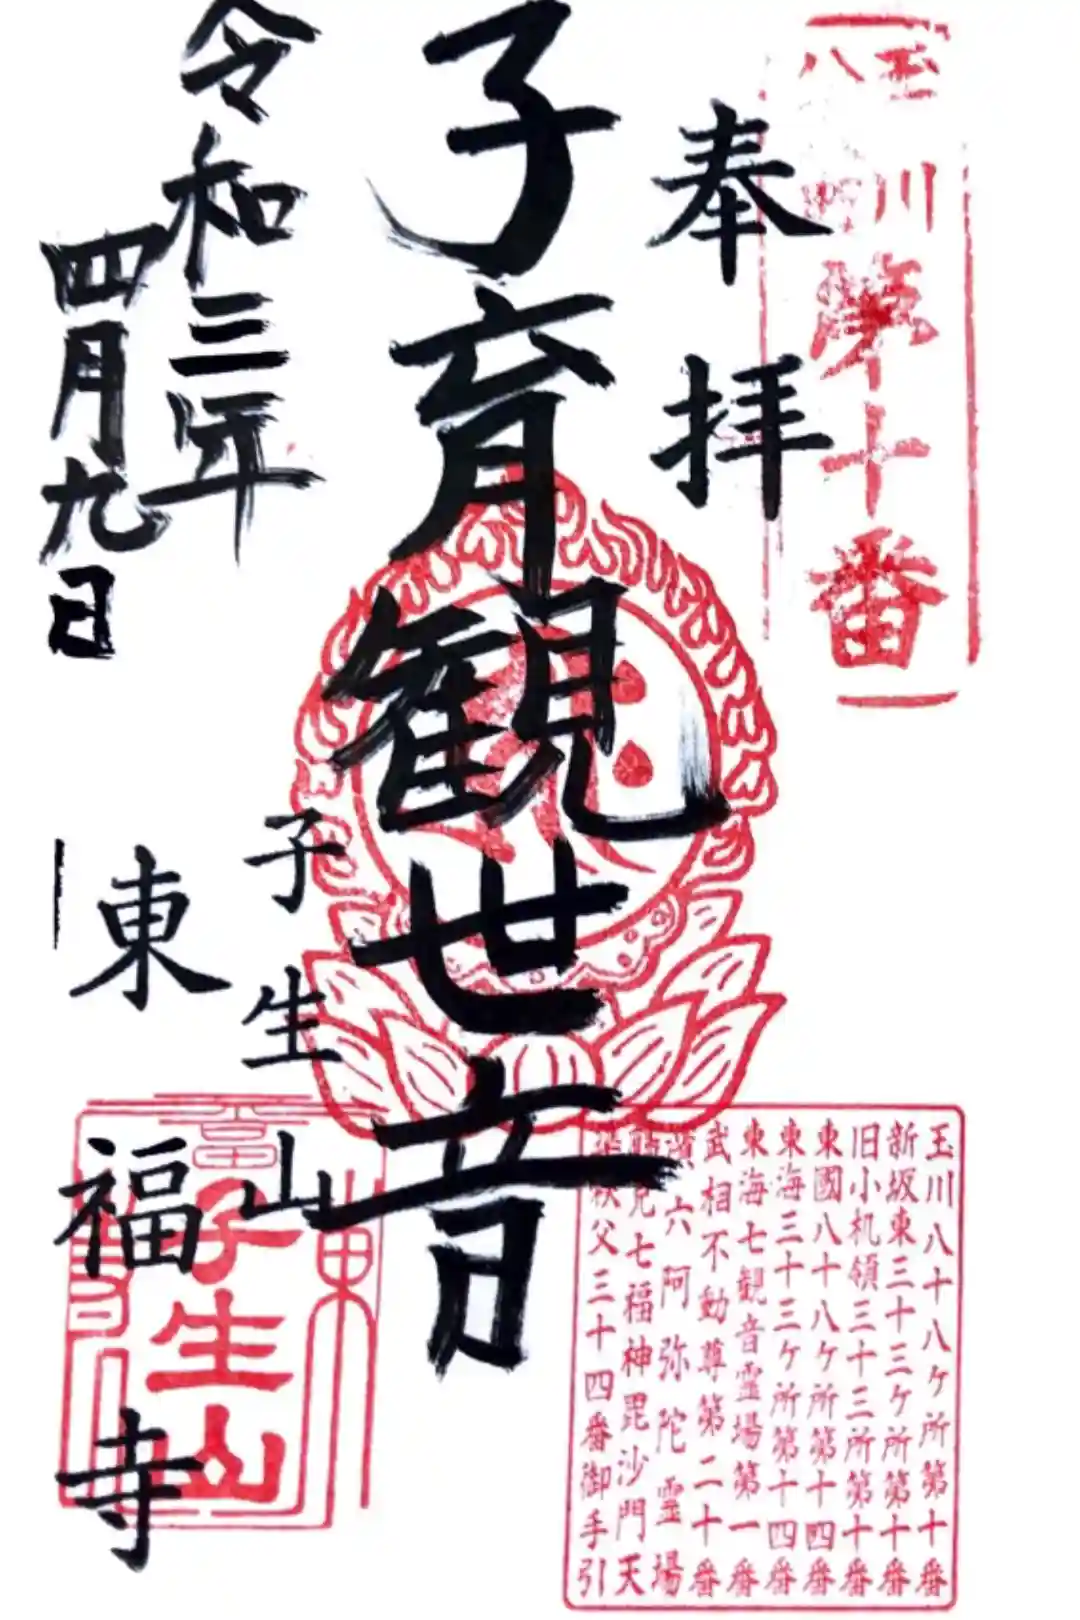 玉川
八
第十番
奉拝
子育観世音
令和三年
四月九日
子生山
東福寺
子生山
玉川八十八ケ所第十番
新坂東三十三ケ所第十番
旧小机領三十三所第十番
東國八十八ケ所第十四番
東海三十三ケ所第十四番
東海七観音霊場第一番
武相不動尊第二十番
六阿弥陀霊場
七福神毘沙門天
秩父三十四番御手引